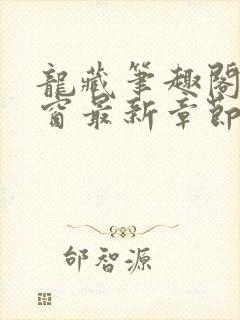 龍藏筆趣閣
窗最新章節
邰智源